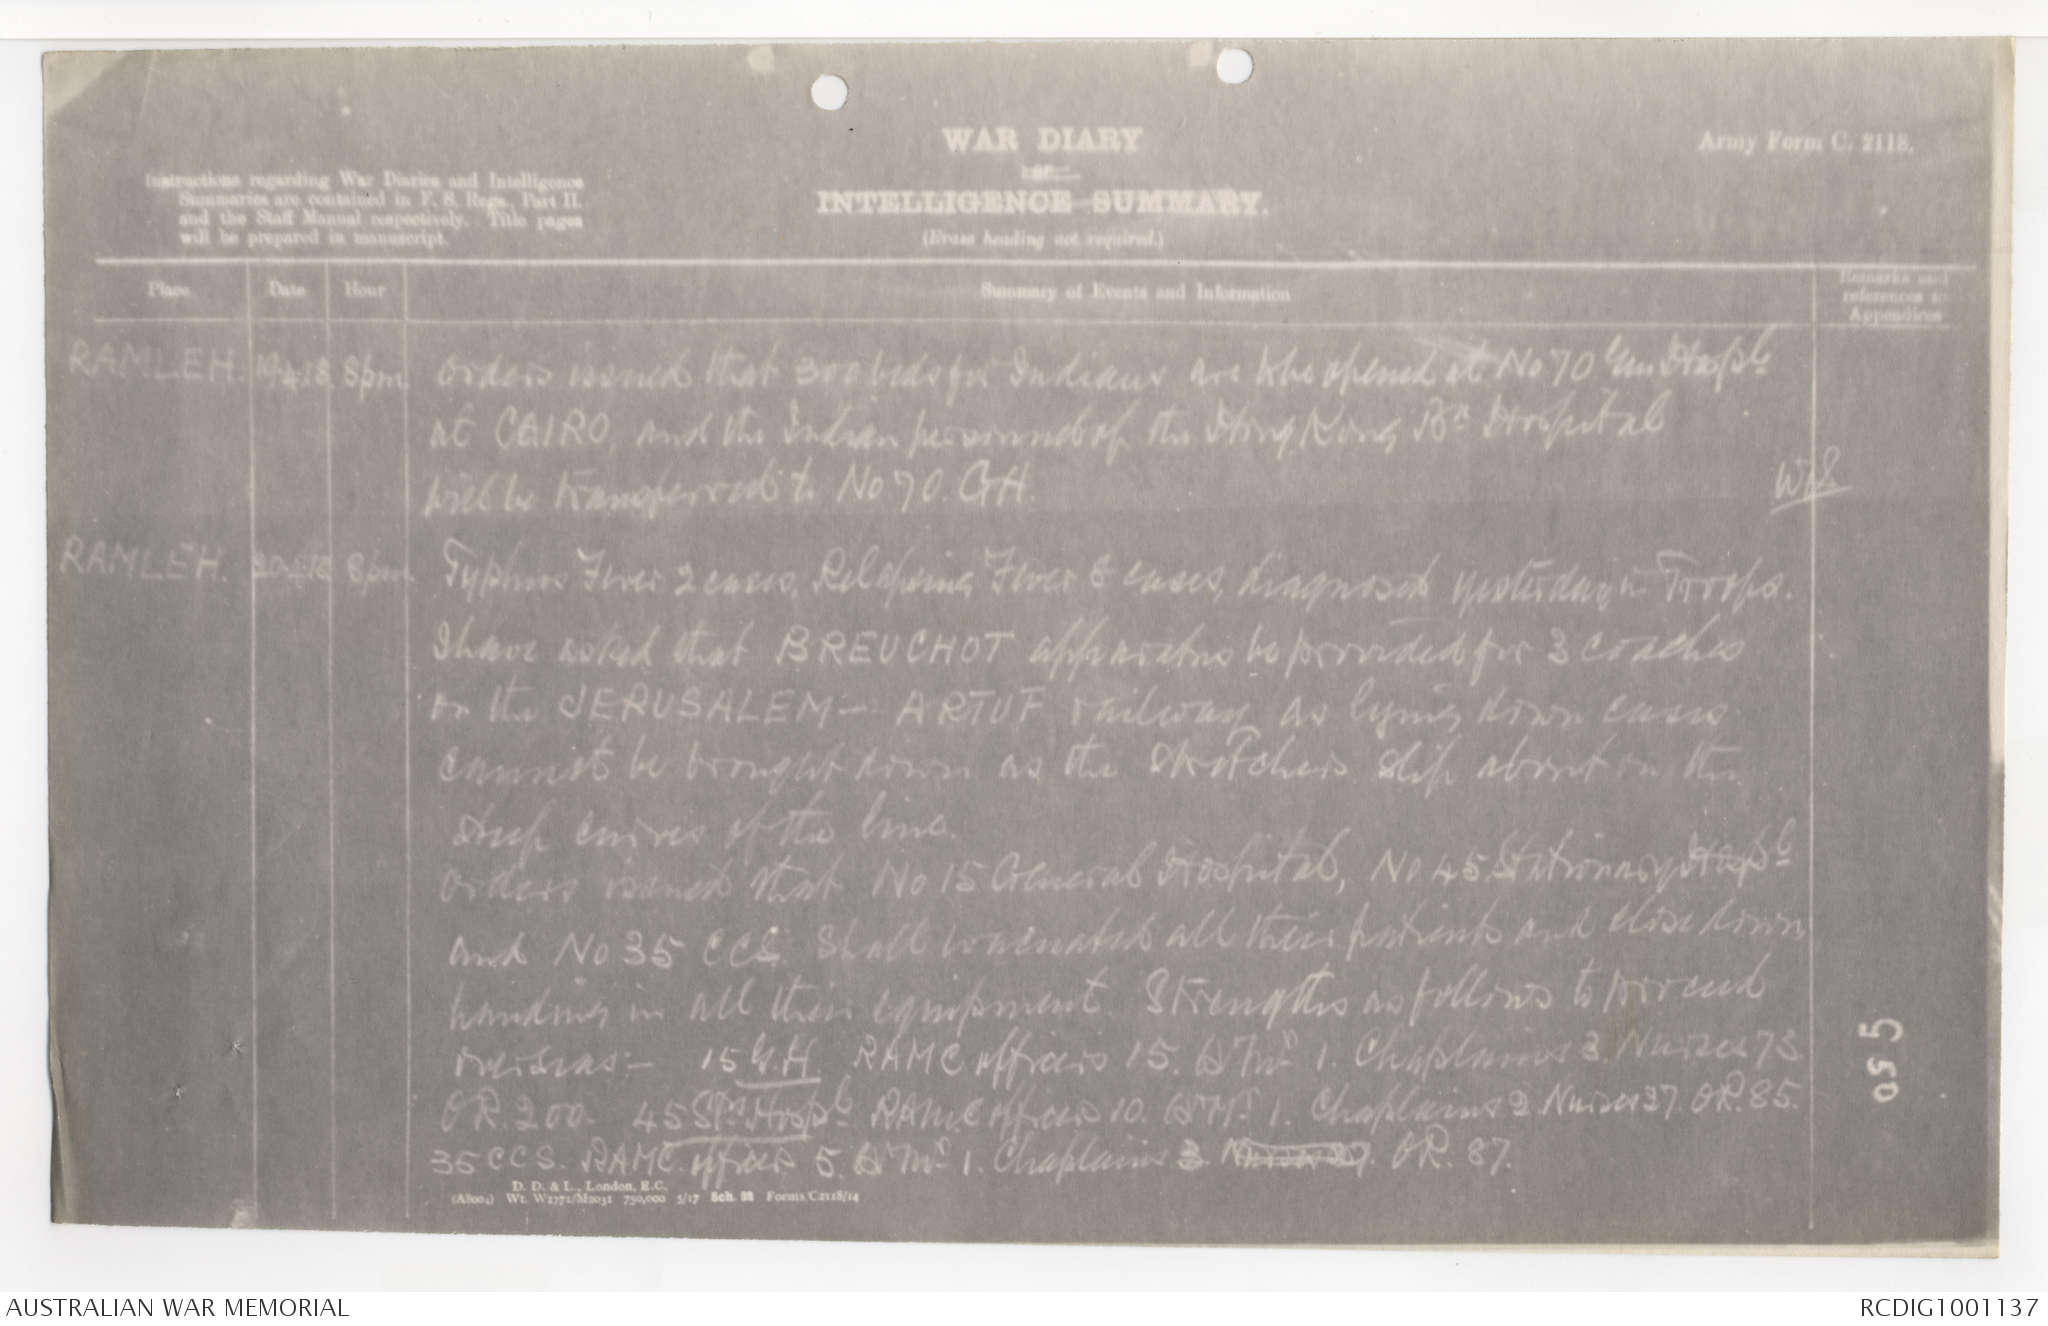 WAR DIARY
or
INTELLIGENCE SUMMARY.
(Erase heading not required.)
Army Form C. 2118.
Instructions regarding War Diaries and Intelligence
Summaries are contained in F. S. Regs., Part II.
and the Staff Manual respectively. Title pages
will be prepared in manuscript.
Place
Date
Hour
Summary of Events and Information
Remarks and
references to
Appendices
RAMLEH. 19.4.18 8pm. Orders issued that 300 beds for Indians are to be opened at No 70 Gen Hospl
at CAIRO, and the Indian personnel of the Hong Kong Bn Hospital
will be transferred to No 70. GH.
RAMLEH. 20.4.18 8pm. Typhus Fever 2 cases, Relapsing Fever 6 cases, diagnosed yesterday in Troops.
I have asked that BREUCHOT apparatus be provided for 3 coaches
on the JERUSALEM - ARTUF railway as lying down cases
cannot be brought down as the stretchers slip about on the
steep curves of the line.
Orders issued that No 15 General Hospital, No 45 Stationary Hospl
and No 35 CCS. shall evacuate all their patients and close down
handing in all their equipment. Strengths as follows to proceed
overseas:- 15 G.H. RAMC officers 15. Qr Mr 1. Chaplains 3 Nurses 75
OR. 200. 45 Sty Hospl RAMC officers 10. Qr Mr 1. Chaplains 2 Nurses 27 OR. 85.
35 CCS. RAMC. officers 5. Qr Mr 1. Chaplains 3 OR. 87.
055
D. D. & L., London, E.C.
(A8004) Wt. W2771/M2031 750,000 5/17 Sch. 52 Forms/C2118/14
AUSTRALIAN WAR MEMORIAL
RCDIG1001137